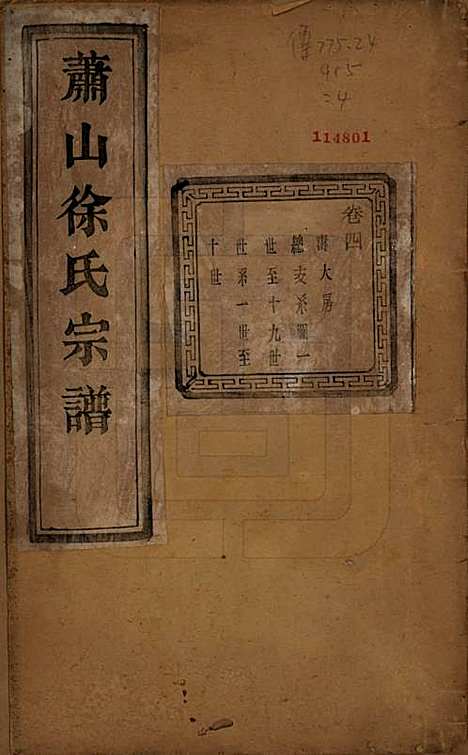 蕭山徐氏宗譜
傳 775.24
915
:4
114801
卷四
大房
總支系圖一
世至十九世
世系一世至
十世